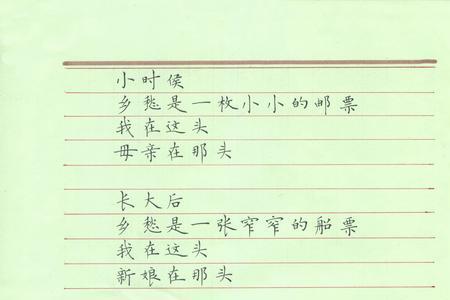 小时侯
乡愁是一枚小小的邮票
我在这头
母亲在那头
长大后
乡愁是一张窄窄的船票
我在这头
新娘在那头